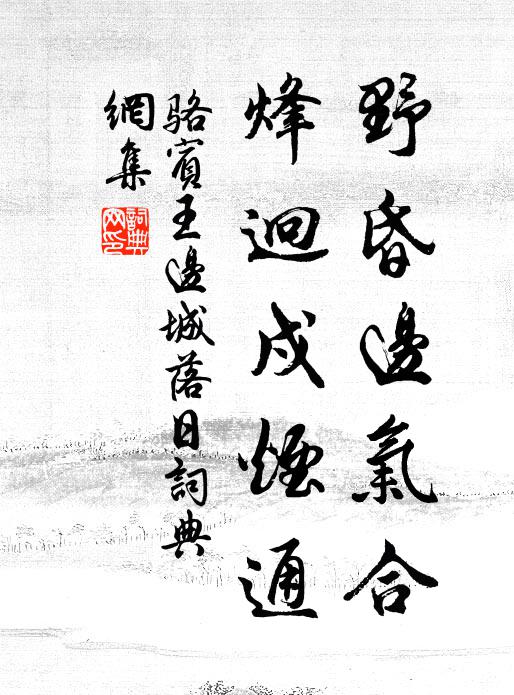 野昏邊氣合
烽迥戍煙通
駱賓王邊城落日詞典
網集
詞典
網印